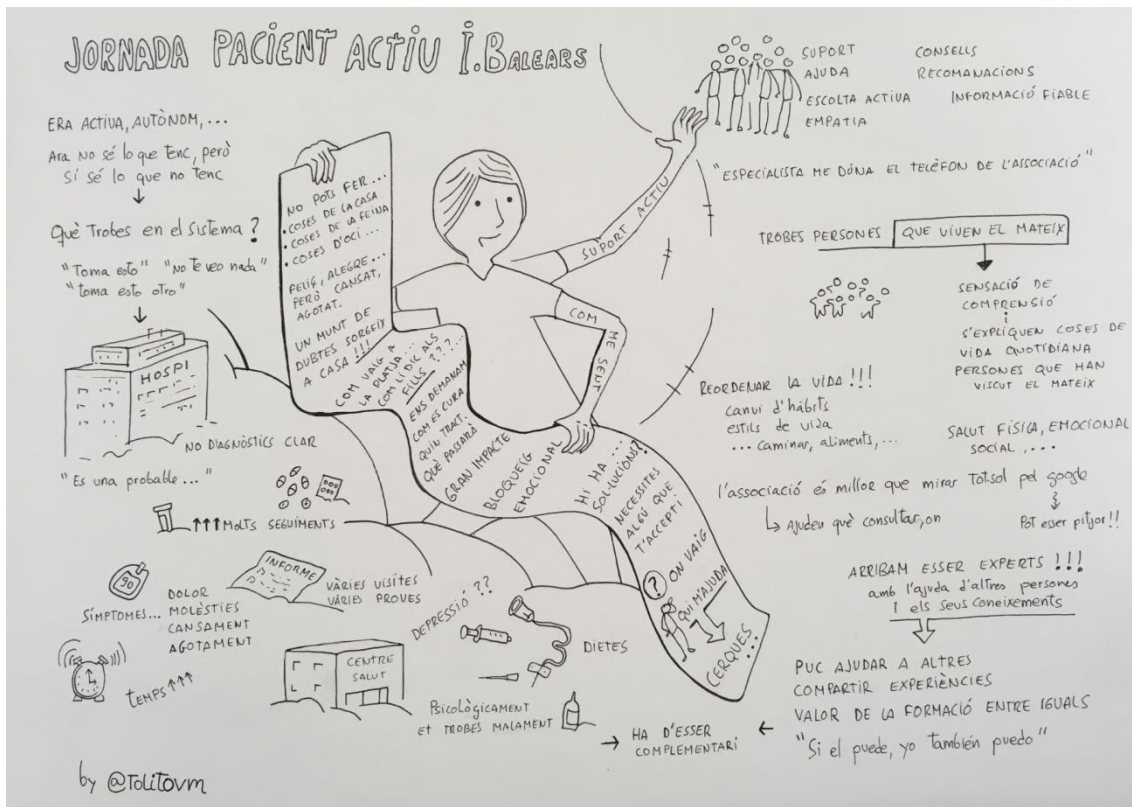 JORNADA PACIENT ACTIU I.BALEARS
ERA ACTIVA, AUTÒNOM, ...
Ara NO sé lo que tenc, però
Sí sé lo que no tenc
Què Trobes en el Sistema?
"Toma esto" "No te veo nada"
"toma esto otro"
HOSPI
NO DIAGNÒSTICS CLAR
"Es una probable..."
↑↑↑ MOLTS SEGUIMENTS
90
SÍMPTOMES...
DOLOR
MOLÈSTIES
CANSAMENT
AGOTAMENT
INFORME
VÀRIES VISITES
VÀRIES PROVES
TEMPS ↑↑↑
CENTRE
SALUT
DEPRESSIÓ ??
Psicològicament
ET TROBES MALAMENT
DIETES
NO POTS FER...
• COSES DE LA CASA
• COSES DE LA FEINA
• COSES D'OCI...
FELIÇ, ALEGRE...
PERÒ CANSAT,
AGOTAT.
UN MUNT DE
DUBTES SORGEIX
A CASA !!!
COM VAIG A
LA PLATJA...
COM LI DIC ALS
FILLS ???...
ENS DEMANAM
COM ES CURA
QUIN TRACT.
QUÈ PASSARÀ
GRAN IMPACTE
BLOQUEIG
EMOCIONAL
HI HA ...
SOL·LUCIONS?
NECESSITES
ALGÚ QUE
T'ACCEPTI
? ON VAIG
QUI M'AJUDA
CERQUES
...
SUPORT ACTIU
COM ME SENT
SUPORT
AJUDA
ESCOLTA ACTIVA
EMPATIA
CONSELLS
RECOMANACIONS
INFORMACIÓ FIABLE
"ESPECIALISTA ME DÓNA EL TELÈFON DE L'ASSOCIACIÓ"
TROBES PERSONES QUE VIVEN EL MATEIX
SENSACIÓ DE
COMPRENSIÓ
i
S'EXPLIQUEN COSES DE
VIDA QUOTIDIANA
PERSONES QUE HAN
VISCUT EL MATEIX
REORDENAR LA VIDA !!!
canvi d'hàbits
estils de vida
... caminar, aliments,...
SALUT FÍSICA, EMOCIONAL
SOCIAL,...
l'associació és millor que mirar Tot sol pel google
↳ Ajuden què consultar, on
Pot esser pitjor!!
ARRIBAM ESSER EXPERTS !!!
amb l'ajuda d'altres persones
I els seus coneixements
PUC AJUDAR A ALTRES
COMPARTIR EXPERIÈNCIES
VALOR DE LA FORMACIÓ ENTRE IGUALS
"Si el puede, yo también puedo"
→ HA D'ESSER ←
COMPLEMENTARI
by @TOLITOVM